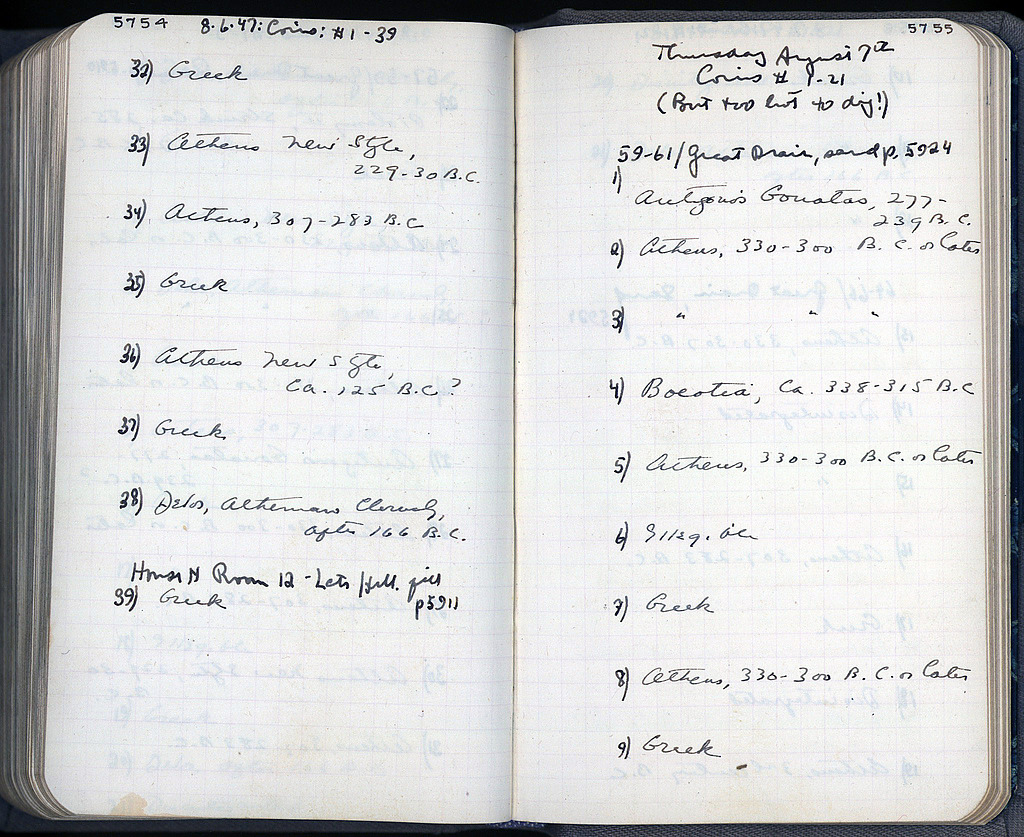 5754
8.6.47: Coins: #1-39
32) Greek
33) Athens New Style,
229-30 B.C.
34) Athens, 307-283 B.C
35) Greek
36) Athens New Style,
Ca. 125 B.C.?
37) Greek
38) Delos, Athenian Cleruchy,
after 166 B.C.
House N Room 12 - Late Hell. fill
p5911
39) Greek
5755
Thursday August 7th
Coins # 1-21
(But too hot to dig!)
59-61/ Great Drain, sand p. 5924
1)
Antigonos Gonatas, 277-
239 B.C.
2) Athens, 330-300 B.C. or later
3) " " "
4) Boeotia, Ca. 338-315 B.C
5) Athens, 330-300 B.C. or later
6) Illegible
7) Greek
8) Athens, 330-300 B.C. or later
9) Greek